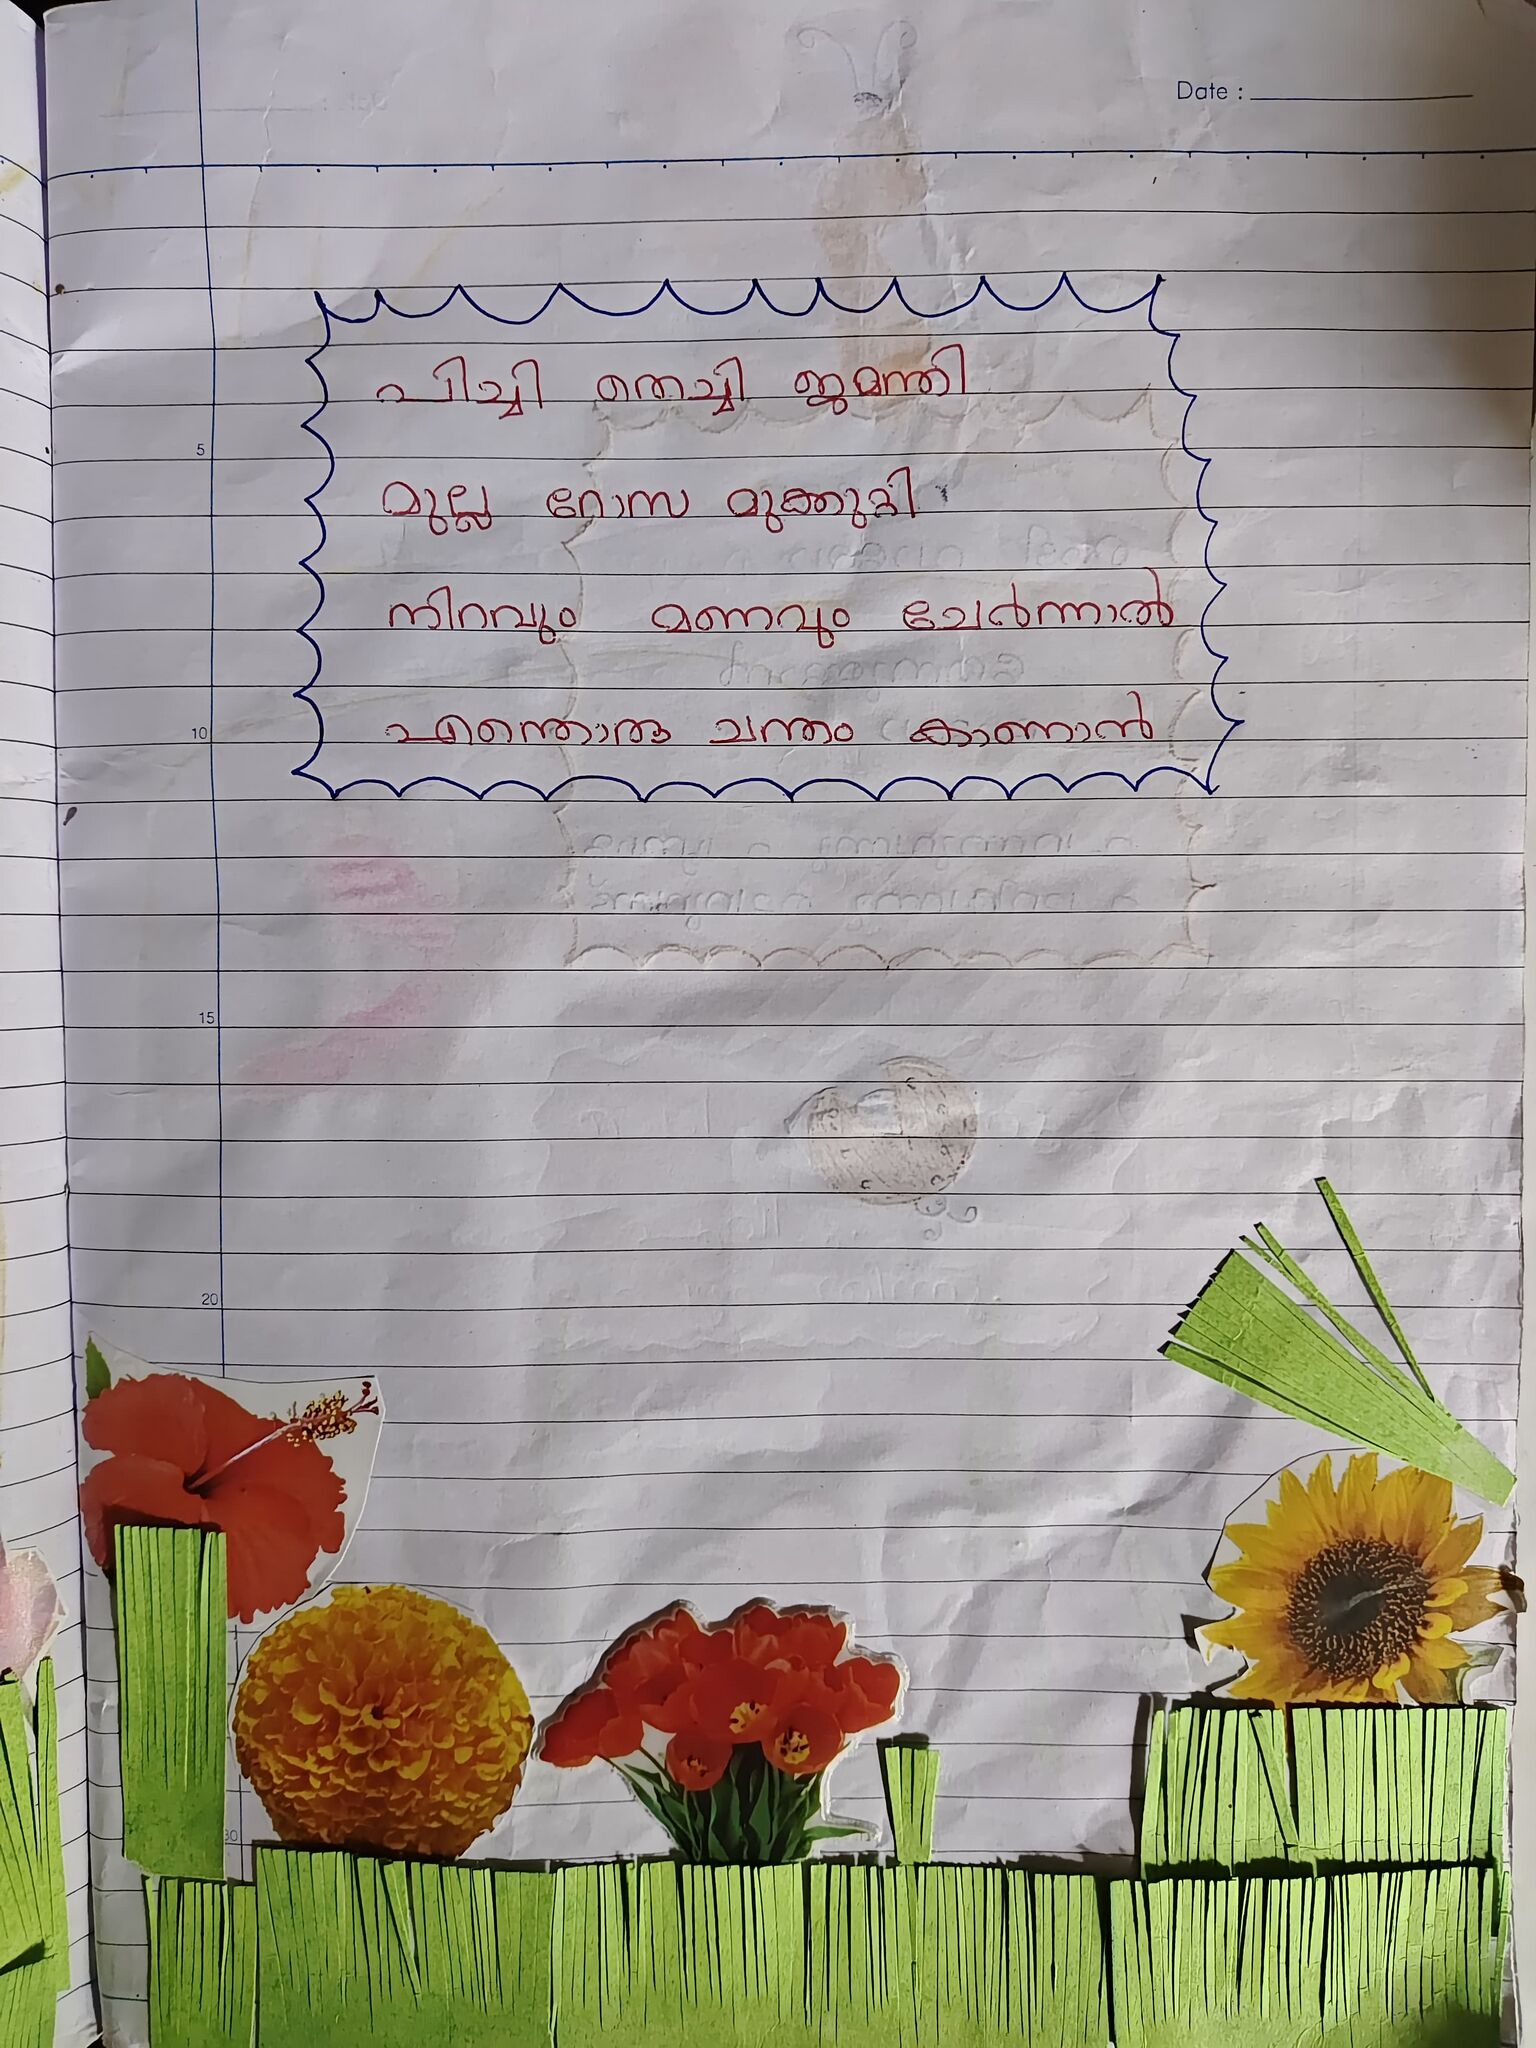 Date :
പിച്ചി തെച്ചി ജമന്തി
മുല്ല റോസ മുക്കുറ്റി
നിറവും മണവും ചേർന്നാൽ
എന്തൊരു ചന്തം കാണാൻ
5
10
15
20
30